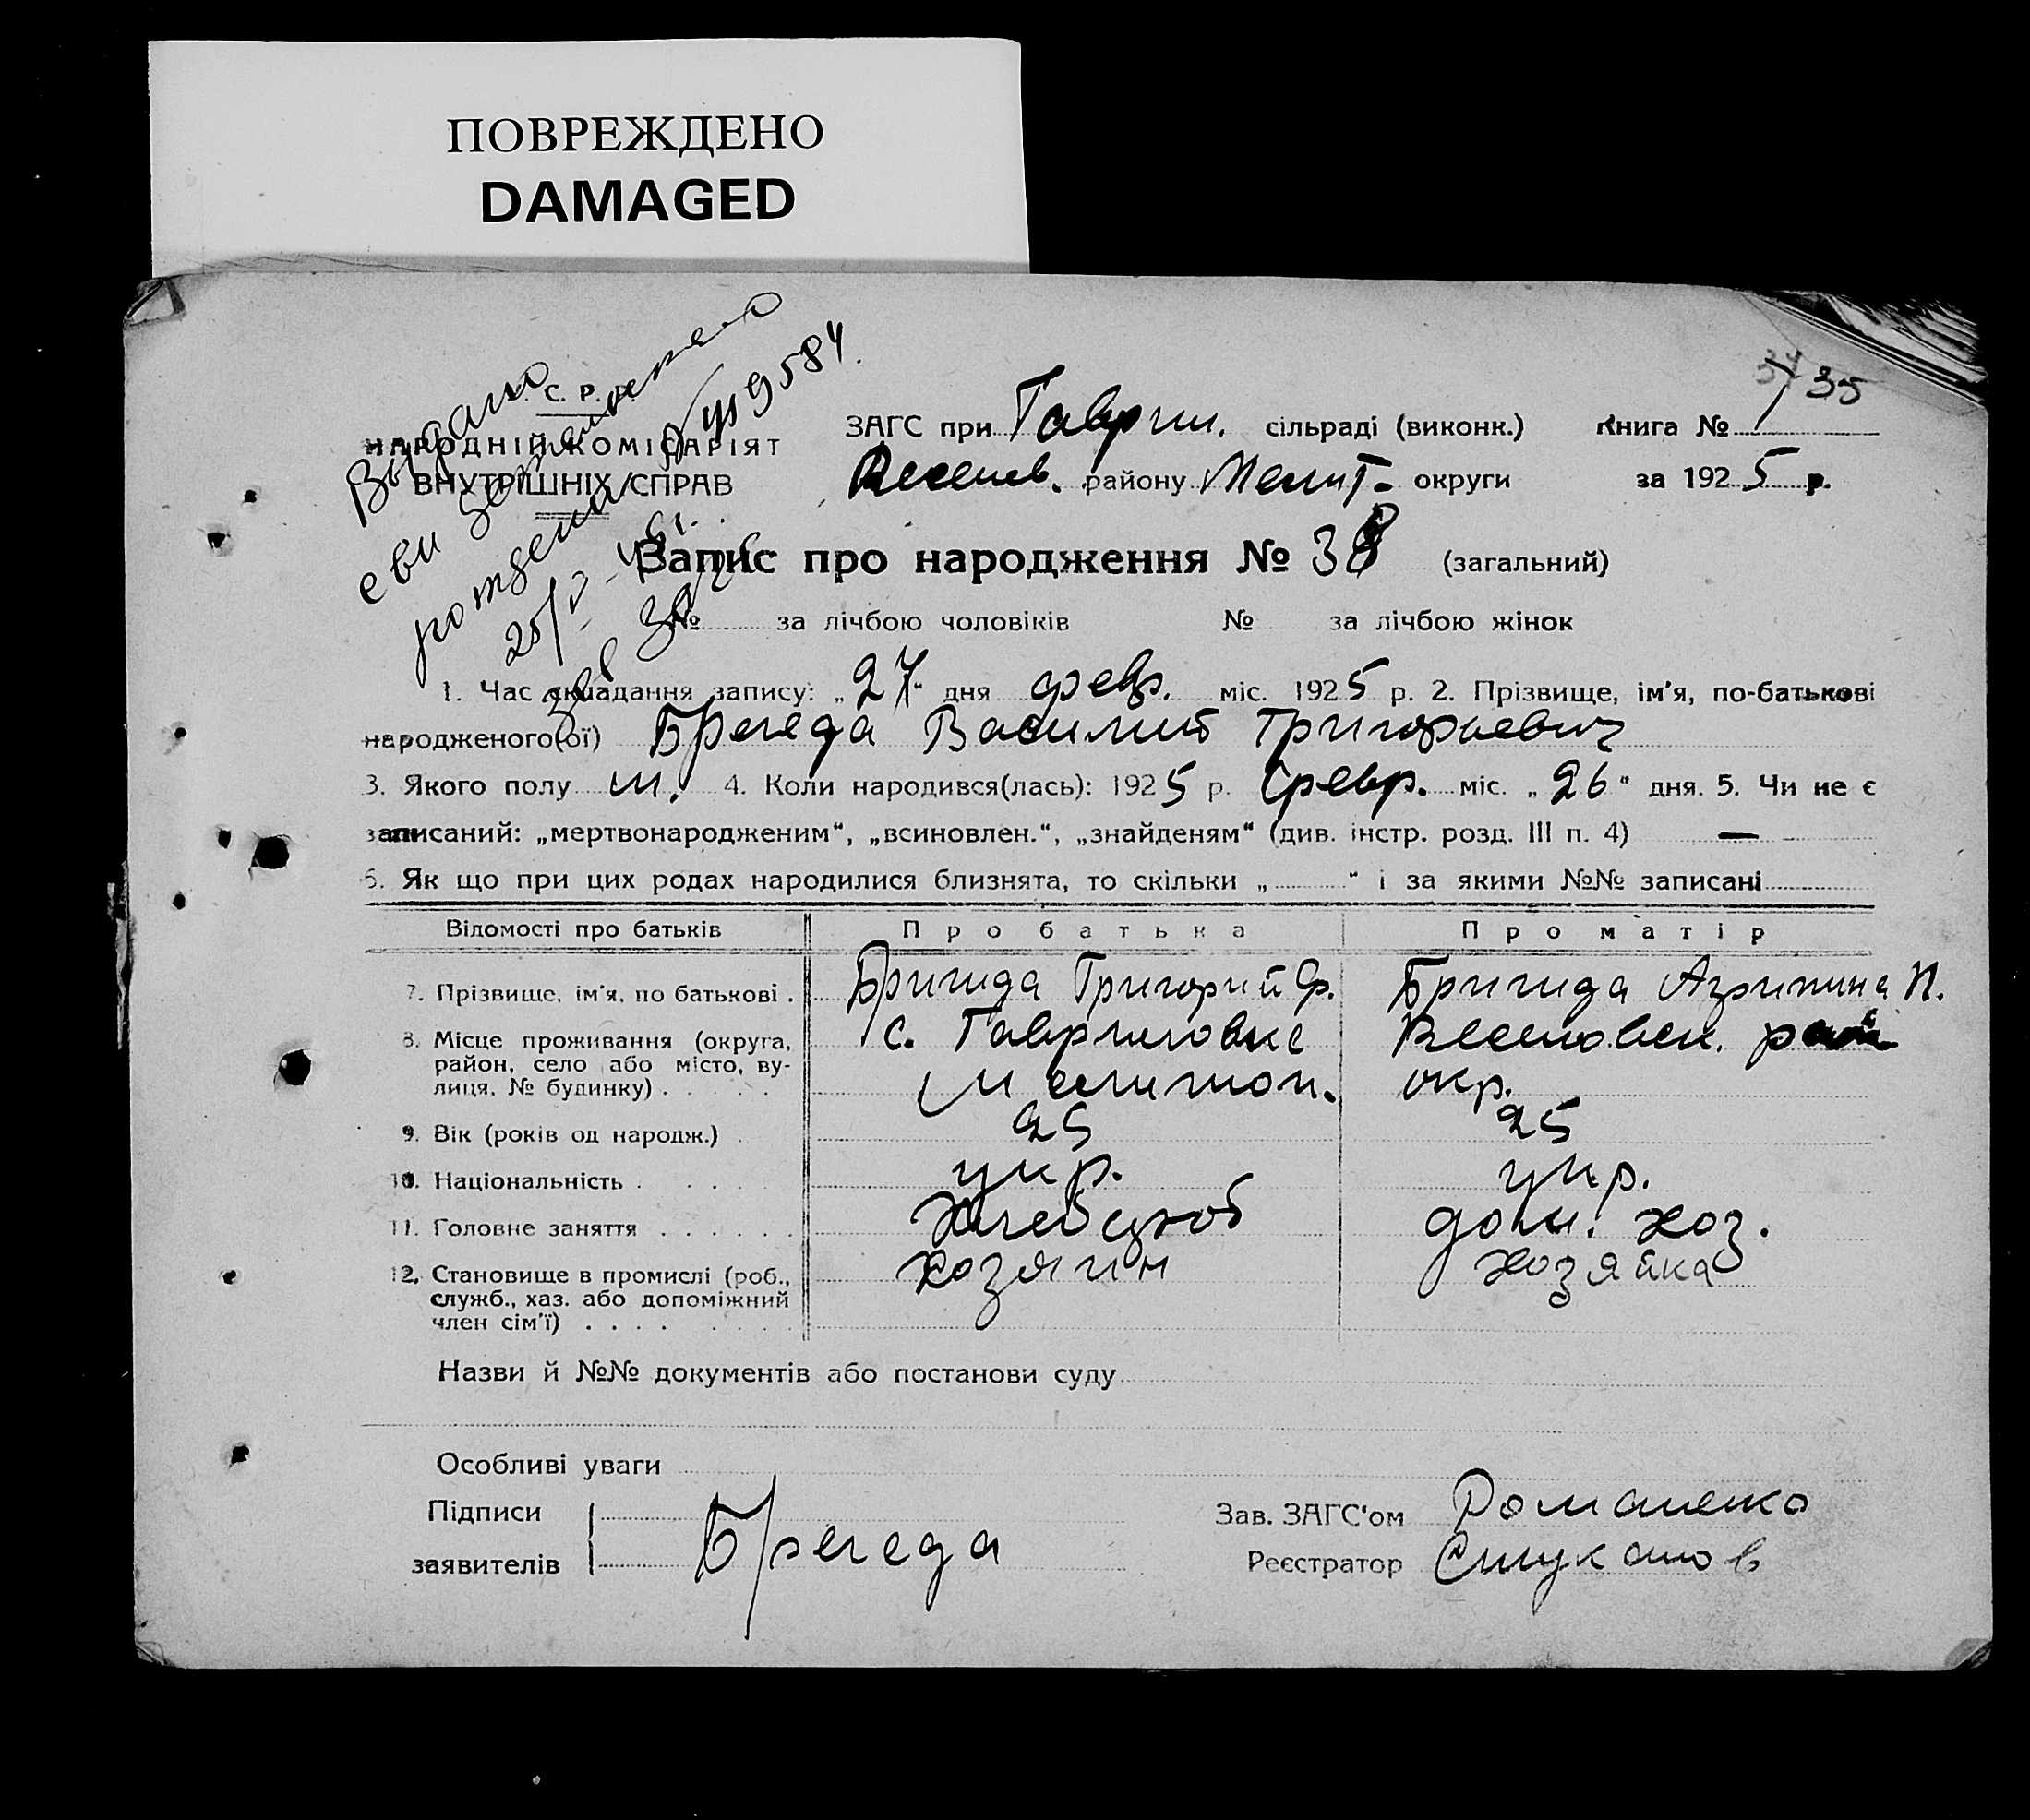 ПОВРЕЖДЕНО
DAMAGED
34
35
С. Р. Р.
НАРОДНІЙ КОМІСАРІЯТ
ВНУТРІШНІХ СПРАВ
Выдано
рождении
9584
25/
Зав Загс
ЗАГС при Гаврил. сільраді (виконк.) Книга №
Веселов. району Мелит- округи за 1925 р.
Запис про народження № 38 (загальний)
№ за лічбою чоловіків № за лічбою жінок
1. Час складання запису: „27“ дня февр. міс. 1925 р. 2. Прізвище, ім'я, по-батькові
народженого(ої) Брегеда Василий Григорьевич
3. Якого полу м. 4. Коли народився(лась): 1925 р. Февр. міс. „26“ дня. 5. Чи не є
записаний: „мертвонародженим“, „всиновлен.“, „знайденям“ (див. інстр. розд. III п. 4) —
6. Як що при цих родах народилися близнята, то скільки „ “ і за якими №№ записані
Відомості про батьків Про батька Про матір
7. Прізвище, ім'я, по батькові . Бригида Григорий Ф. Бригида Агрипина П.
8. Місце проживання (округа, район, село або місто, вулиця, № будинку) . с. Гавриловке Веселовск. рай
Мелитоп. окр.
9. Вік (років од народж.) . 25 25
10. Національність . укр. укр.
11. Головне заняття . . . . . . Хлебороб дом. хоз.
12. Становище в промислі (роб., служб., хаз. або допоміжний член сім'ї) . . . . хозяин хозяйка
Назви й №№ документів або постанови суду
Особливі уваги
Підписи заявителів Брегеда
Зав. ЗАГС'ом Романенко
Реєстратор